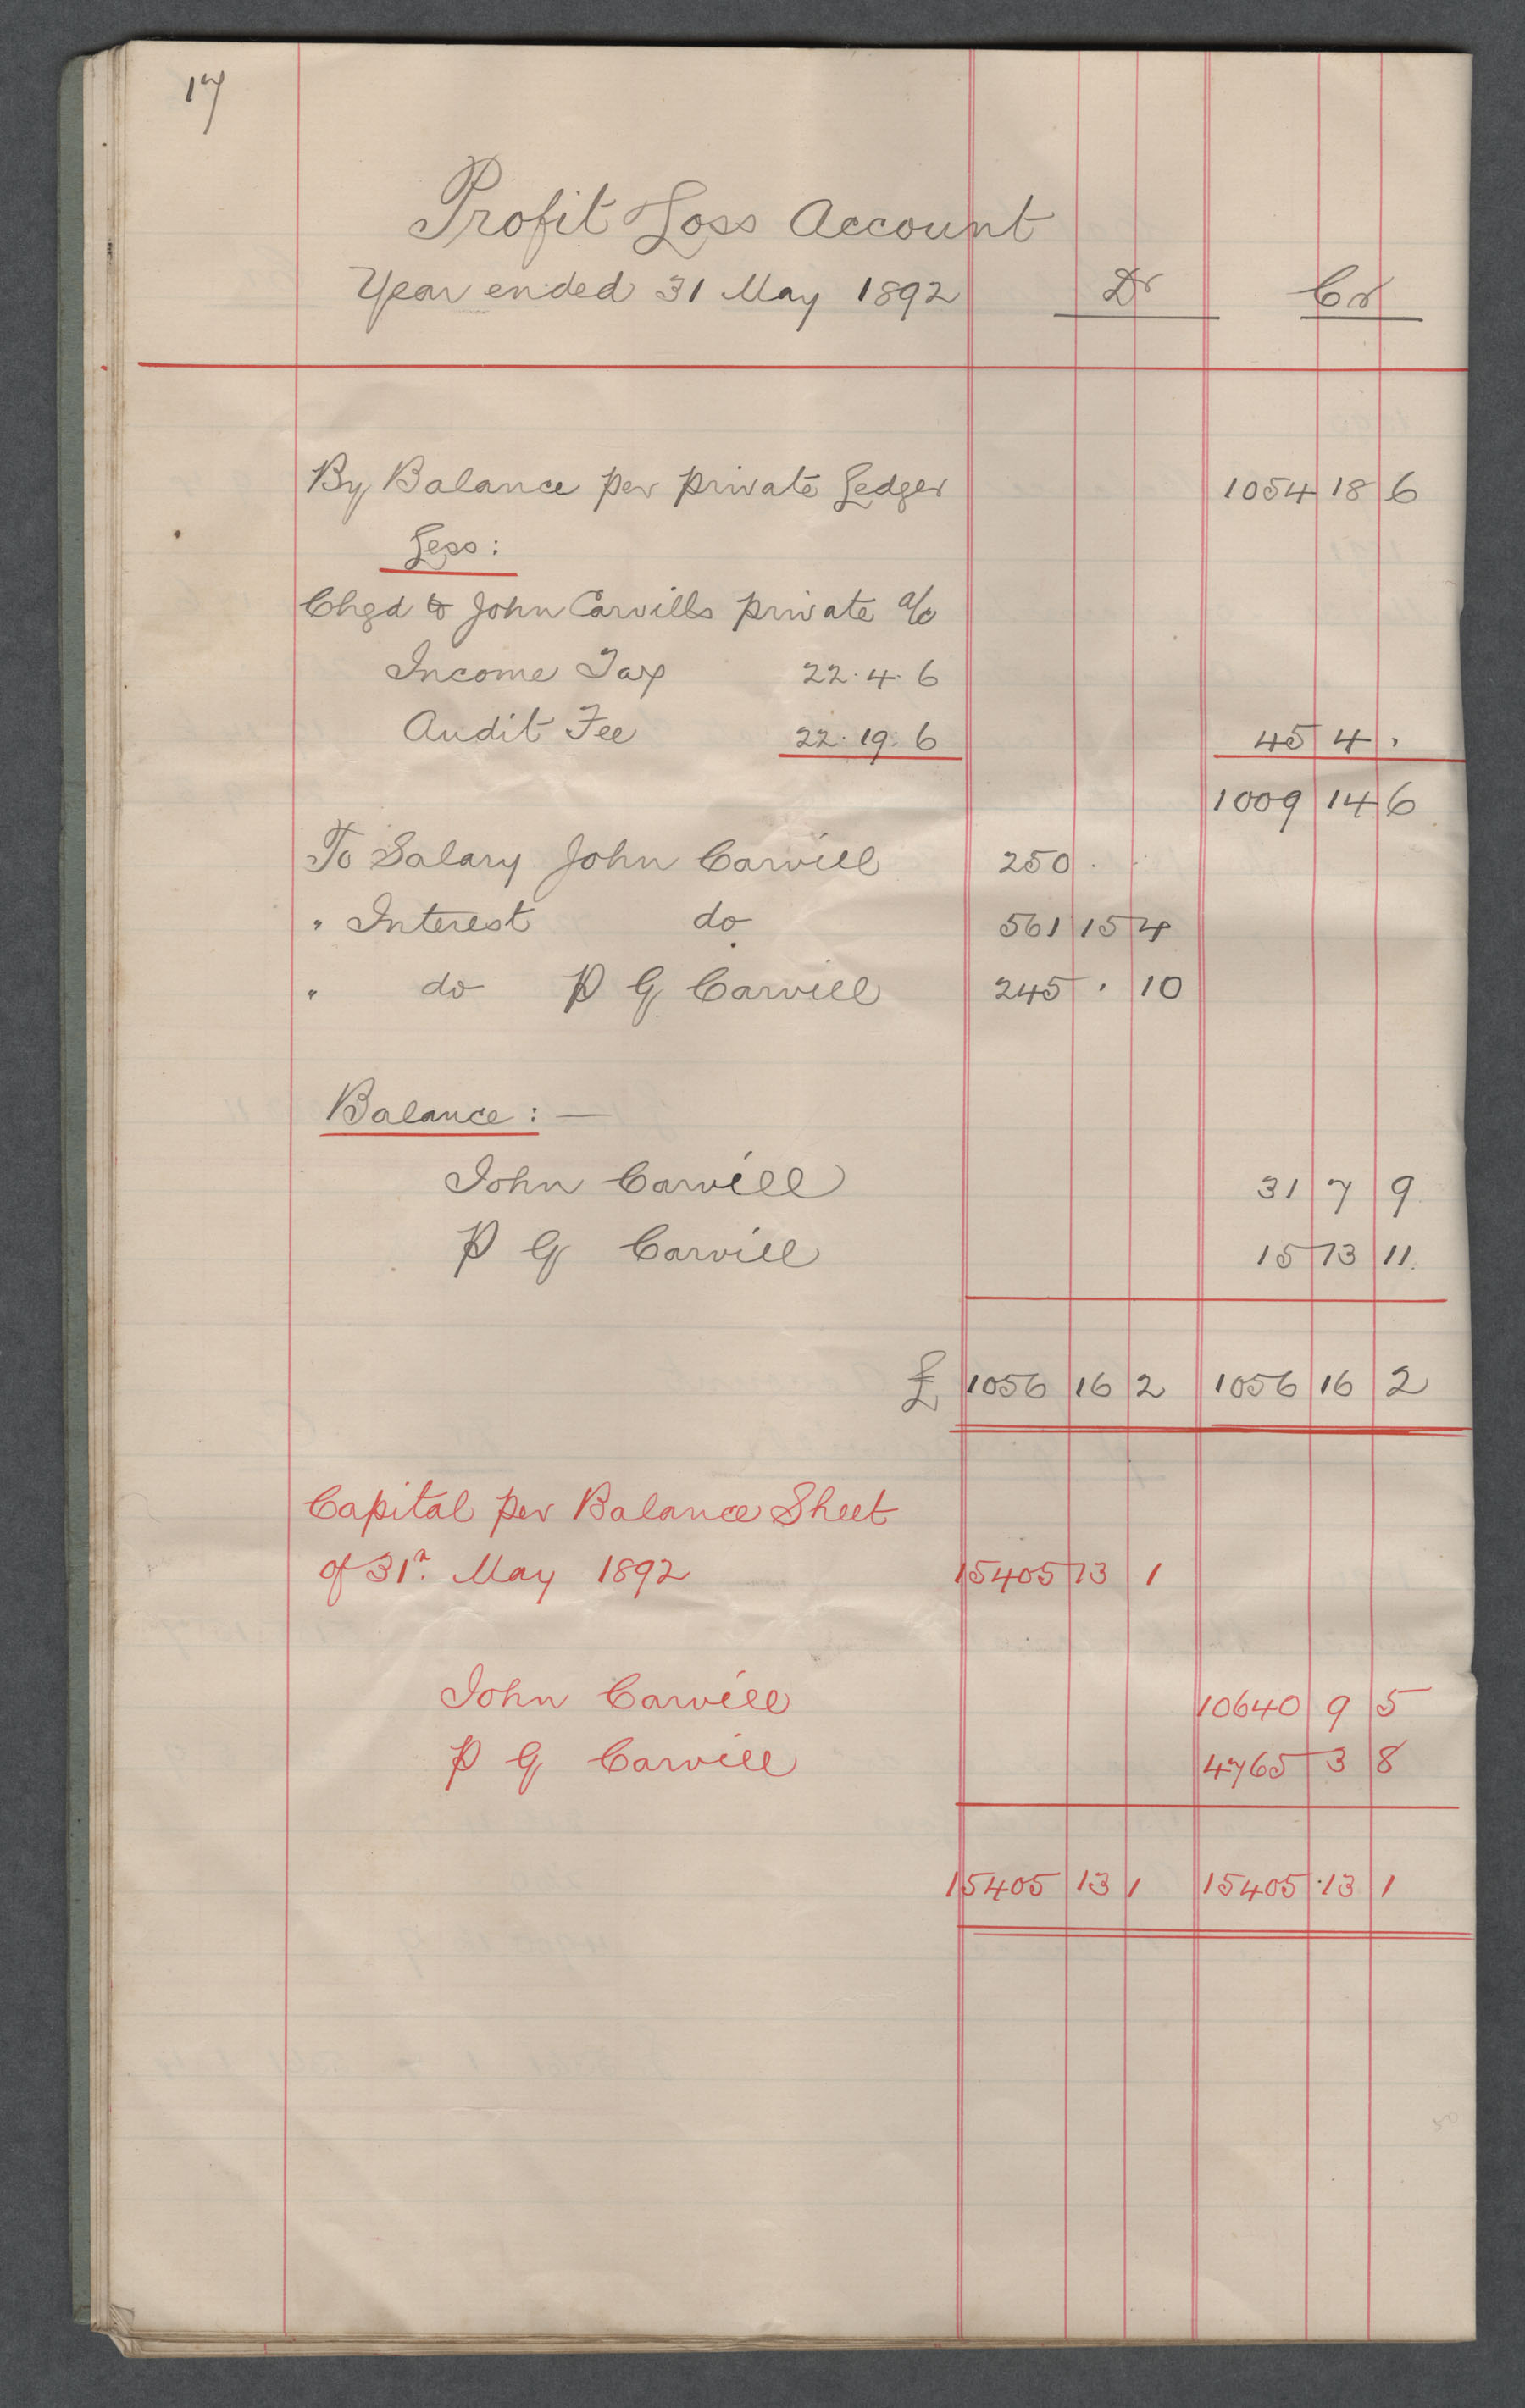 17
Profit Loss Account
Year ended 31 May 1892 Dr Cr
By Balance per private Ledger 1054 18 6
Less:
Chgd to John Carvills private a/c
Income Tax 22.4.6
Audit Fee 22.19.6 45 4 .
1009 14 6
To Salary John Carvill 250 . .
" Interest do 561 15 4
" do P G Carvill 245 . 10
Balance: —
John Carvill 31 7 9
P G Carvill 15 13 11
£ 1056 16 2 1056 16 2
Capital per Balance Sheet
of 31st May 1892 15405 13 1
John Carvill 10640 9 5
P G Carvill 4765 3 8
15405 13 1 15405 13 1